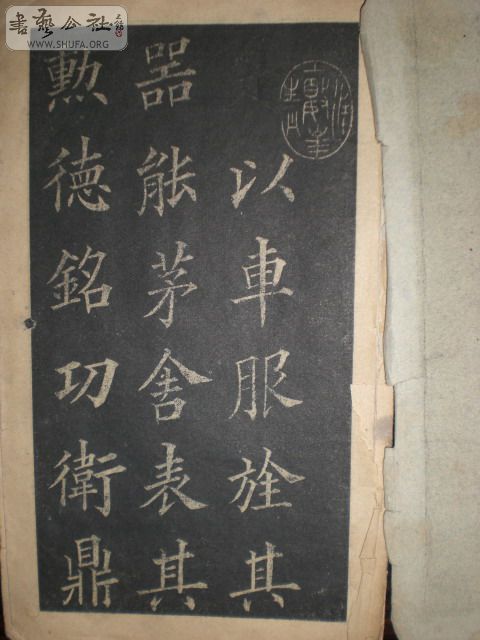 以車服旌其
器能茅舍表其
勲徳銘功衛鼎
書藝公社
WWW.SHUFA.ORG